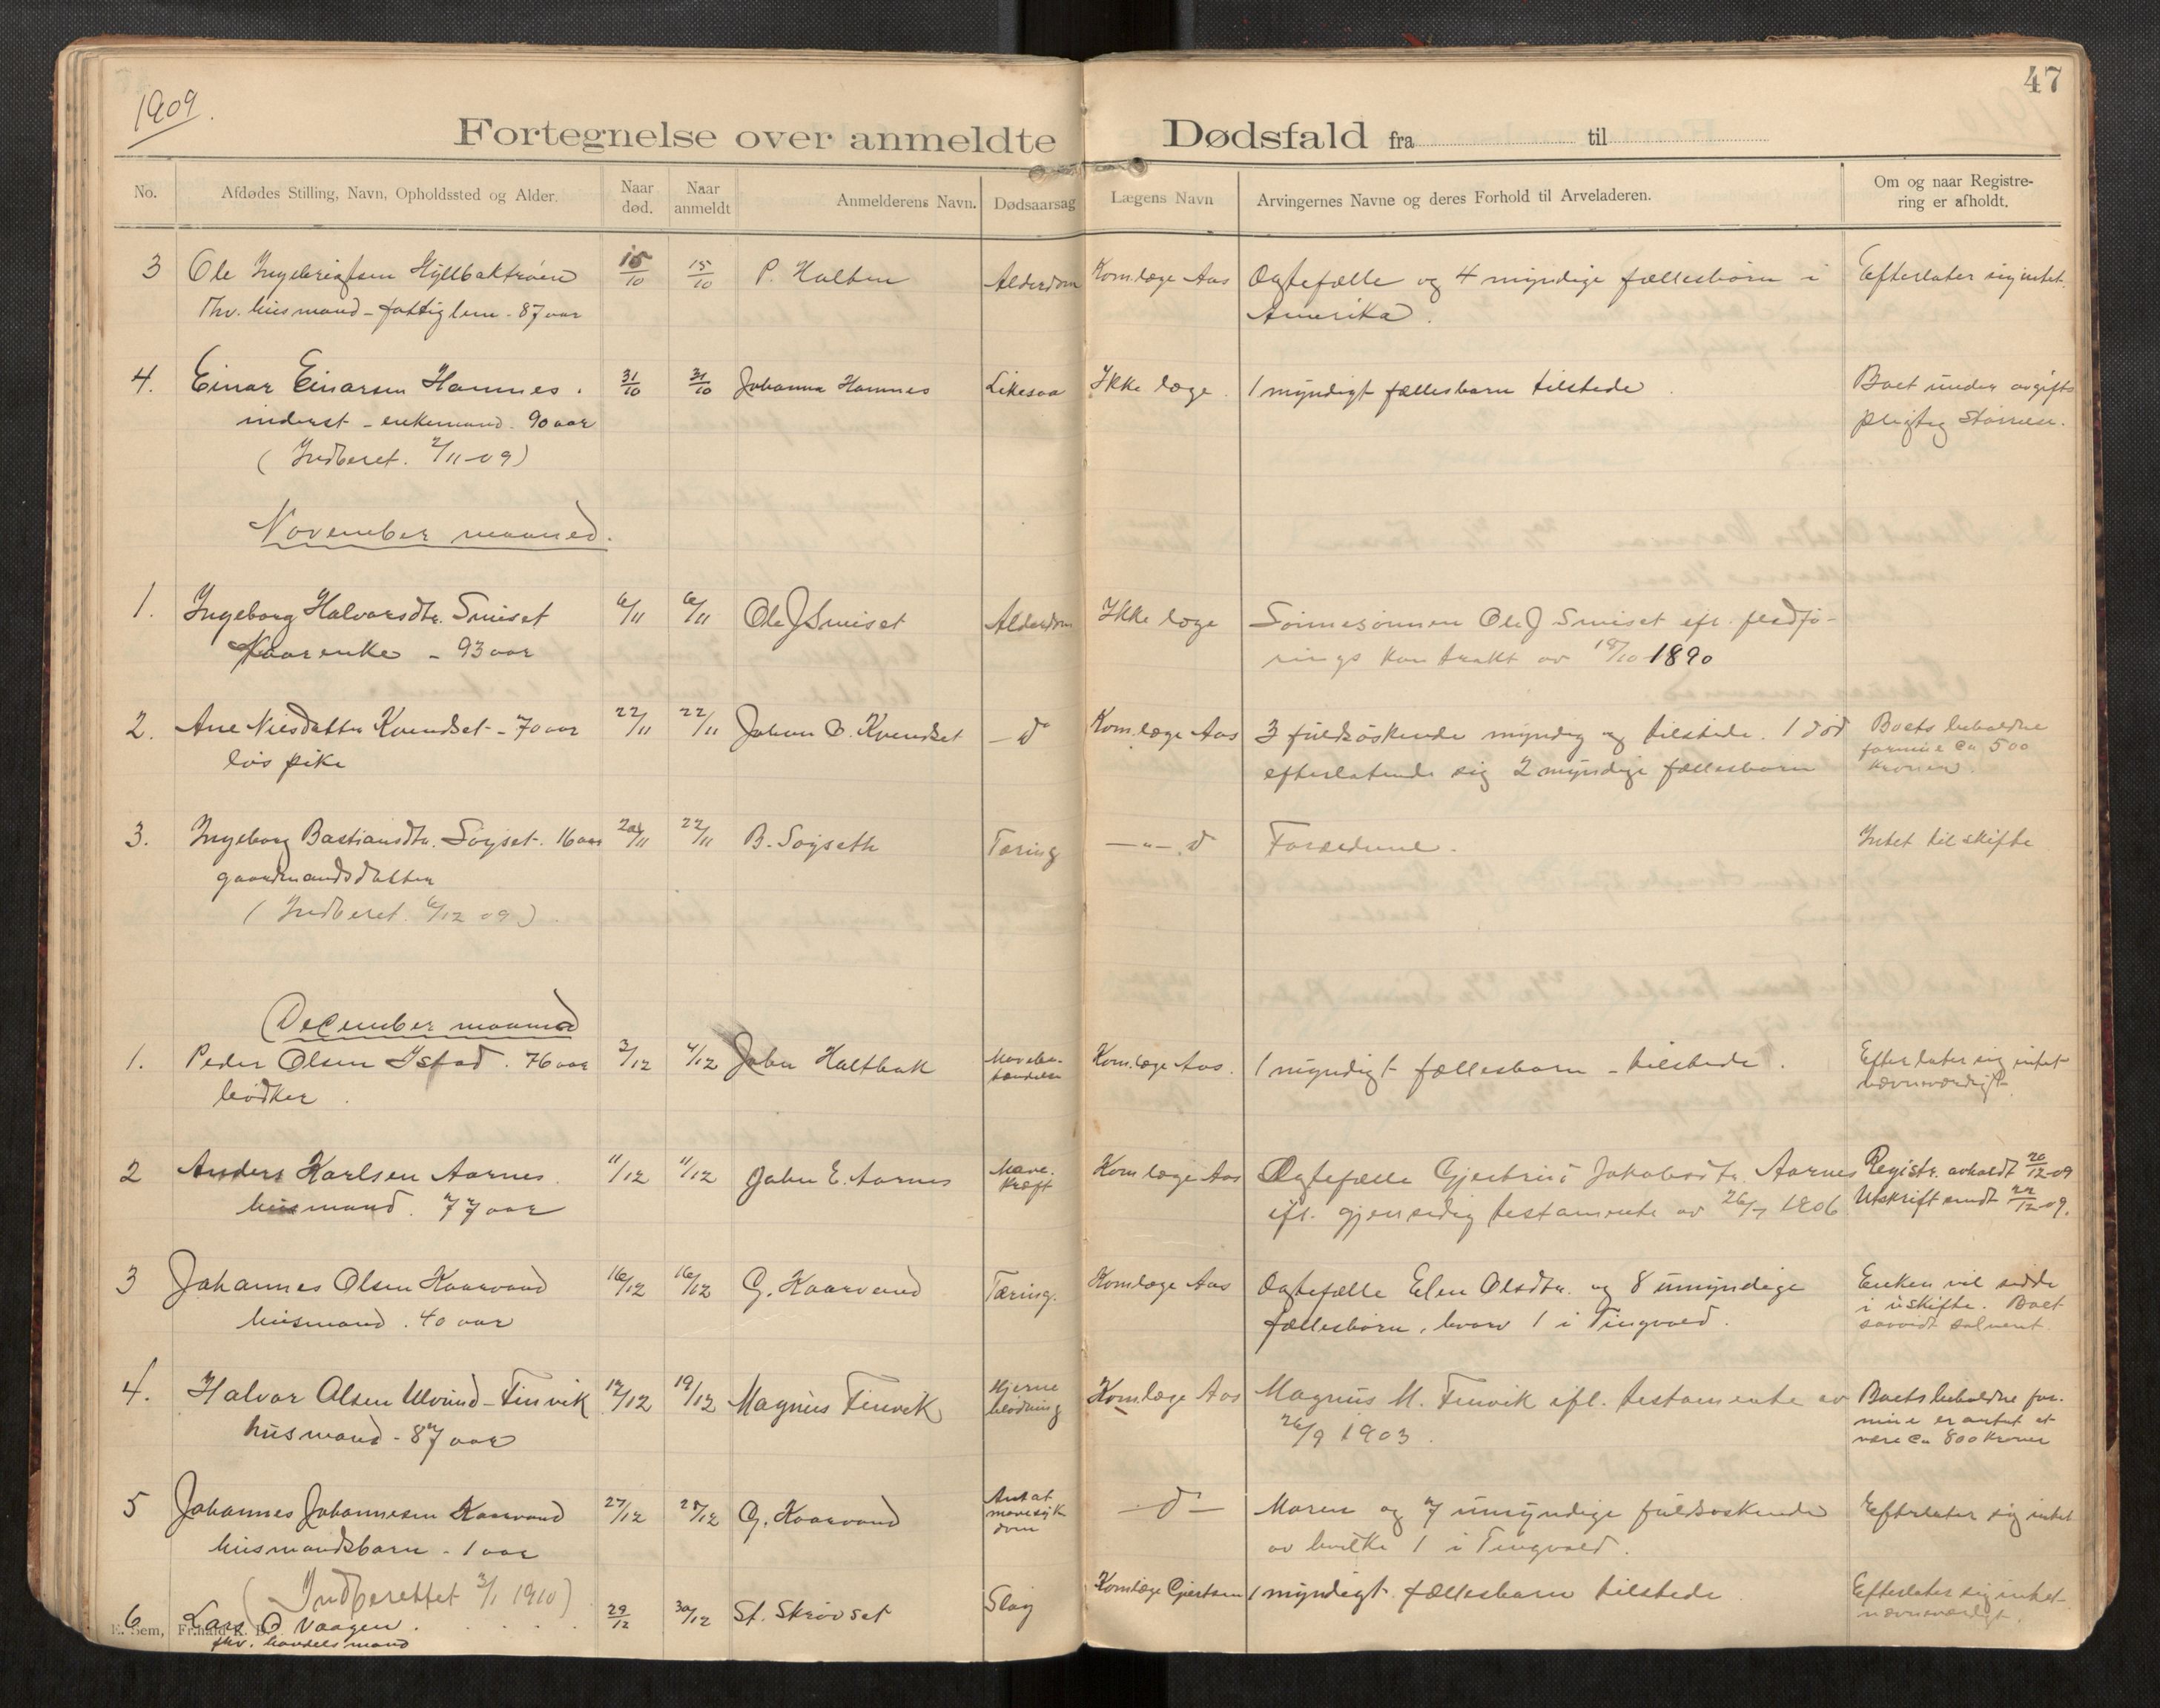 1909.
47
Fortegnelse over anmeldte Dødsfald fra til
No.
Afdødes Stilling, Navn, Opholdssted og Alder.
Naar død.
Naar anmeldt
Anmelderens Navn.
Dødsaarsag
Lægens Navn
Arvingernes Navne og deres Forhold til Arveladeren.
Om og naar Registre-
ring er afholdt.
3 Ole Ingebrigtsen Hyllbaktrøen 15/10 15/10 P. Halten Alderdom Kom.læge Aas Ægtefælle og 4 myndige fællesbørn i Efterlater sig intet.
Fhv. husmand - fattiglem - 87 aar Amerika.
4. Einar Einarsen Hamnes. 31/10 31/10 Johanna Hamnes Likesaa Ikke læge. 1 myndigt fællesbarn tilstede. Boet under avgifts
inderst - enkemand. 90 aar pligtig større.
(Indberet. 2/11-09)
November maaned.
1. Ingeborg Halvorsdtr. Smiset 6/11 6/11 Ole J Smiset Alderdom Ikke læge Sønnesønnen Ole J Smiset efr. fledfø-
Kaarenke - 93 aar rings kontrakt av 18/10 1890
2. Ane Nilsdatter Kvendset - 70 aar 22/11 22/11 Johan O. Kvendset - d° Kom.læge Aas 3 fuldsøskende myndig og tilstede. 1 død Boets beholdne
løs pike efterlatende sig 2 myndige fællesbarn formue ca 500
kroner.
3. Ingeborg Bastiansdtr. Søyset. 16 aar 20/11 22/11 B. Søyseth Tæring —"— d Forældrene. Intet til skifte
gaardmandsdatter
(Indberet. 6/12 09).
December maaned
1. Peder Olsen Istad. 76 aar 3/12 4/12 John Haltbak Mavebe-
tændelse Kom.læge Aas. 1 myndigt fællesbarn - tilstede. Efterlater sig intet
bødker. nævneværdigt
2 Anders Karlsen Aarnes. 11/12 11/12 John E. Aarnes Mave.
kræft Kom læge Aas Ægtefælle Gjertrud Jakobsdtr. Aarnes Registr. avholdt 20/12-09
husmand. 77 aar ifl. gjensidig testamente av 26/7 1806. Utskrift sendt 22/12 09.
3 Johannes Olsen Kaarvand 16/12 16/12 G. Kaarvand Tæring. Kom læge Aas Ægtefælle Elen Olsdtr. og 8 umyndige Enken vil sidde
husmand. 40 aar fællesbørn, hvorav 1 i Tingvold. i uskifte. Boet
saavidt solvent.
4. Halvor Olsen Ulvund - Finvik 17/12 19/12 Magnus Finvik Hjerne
blødning Kom.læge Aas Magnus M. Finvik ifl. testamente av Boets beholdne for-
husmand - 87 aar 26/9 1903. mue er antat at
være ca 800 kroner
5 Johannes Johannesen Kaarvand 27/12 28/12 G. Kaarvand Antat
mavesyk
dom — d° — Moren og 7 umyndige fuldsøskende Efterlater sig intet
husmandsbarn - 1 aar av hvilke 1 i Tingvold.
(Indberettet 3/1 1910)
6 Lars O Vaagen. 29/12 30/12 St. Skrøvset Slag Komlæge Gjertsen 1 myndigt fællesbarn tilstede Efterlater sig intet
fhv. handelsmand nævneværdigt.
E. Sem, Fr.hald